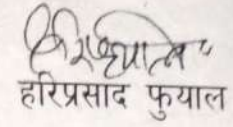 हरिप्रसाद फुयाल